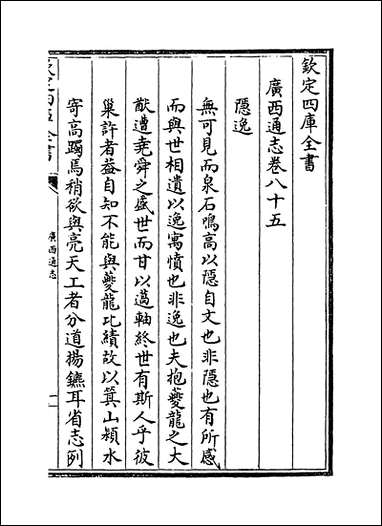 欽定四庫全書
廣西通志卷八十五
隱逸
無可見而泉石鳴高以隱自文也非隱也有所感
而與世相遺以逸寓憤也非逸也夫抱夔龍之大
猷遭堯舜之盛世而甘以薖軸終世有斯人乎彼
巢許者益自知不能與夔龍比績故以箕山潁水
寄高躅焉稍欲與亮天工者分道揚鑣耳省志列
廣西通志
一